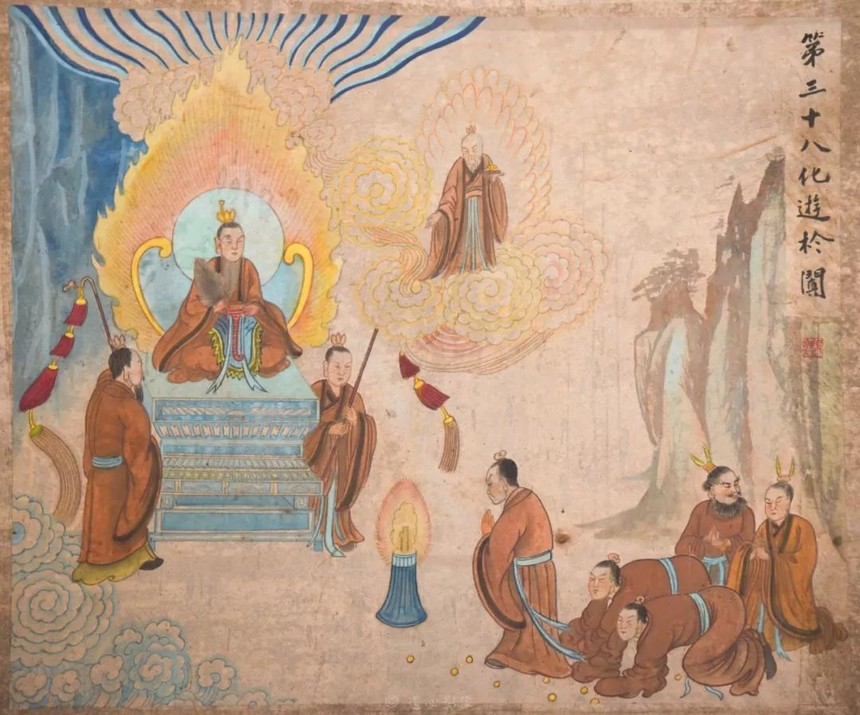 第三十八化遊於闐